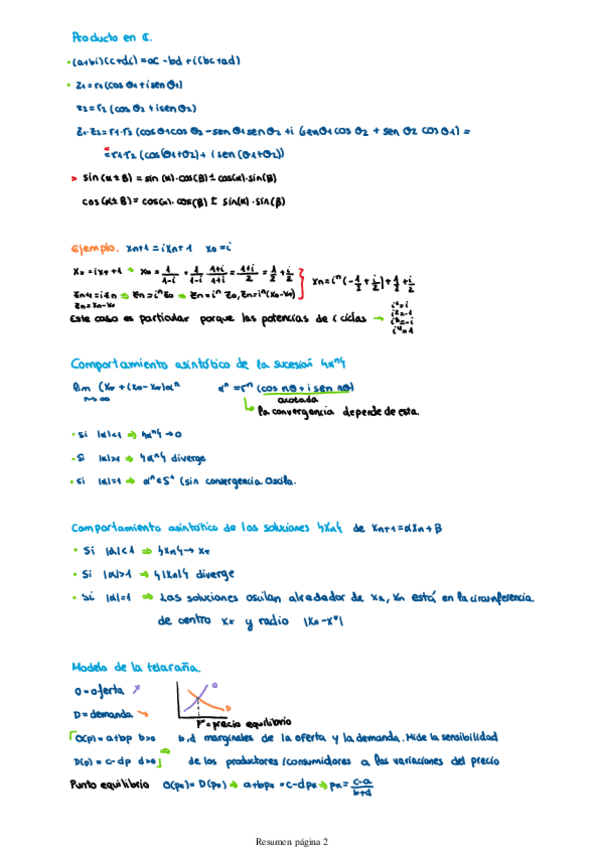 Producto en ℂ.
• (a+bi)(c+di) = ac - bd + i(bc+ad)
• z₁ = r₁(cos θ₁ + i sen θ₁)
z₂ = r₂ (cos θ₂ + i sen θ₂)
z₁·z₂ = r₁·r₂ (cos θ₁ cos θ₂ - sen θ₁ sen θ₂ + i (sen θ₁ cos θ₂ + sen θ₂ cos θ₁) =
= r₁·r₂ (cos(θ₁+θ₂) + i sen (θ₁+θ₂))
> sin(α ± β) = sin(α)·cos(β) ± cos(α)·sin(β)
cos(α ± β) = cos(α)·cos(β) ± sin(α)·sin(β)
Ejemplo. xn+1 = ixn + 1 x₀ = i
x* = ix* + 1 → x* = 1/(1-i) = 1/(1-i) · (1+i)/(1+i) = (1+i)/2 = 1/2 + i/2
zn+1 = izn ⇒ zn = iⁿz₀ ⇒ zn = iⁿ z₀, zn = iⁿ(x₀-x*) xn = iⁿ(-1/2 + i/2) + 1/2 + i/2
zn = xn - x*
Este caso es particular porque las potencias de i ciclas → i¹ = i
i² = -1
i³ = -i
i⁴ = 1
Comportamiento asintótico de la sucesión {αⁿ}
lim (x* + (x₀ - x*)αⁿ αⁿ = rⁿ (cos nθ + i sen nθ)
n→∞ acotada
la convergencia depende de esta.
• Si |α|<1 ⇒ {αⁿ} → 0
• Si |α|>1 ⇒ {αⁿ} diverge
• Si |α|=1 ⇒ αⁿ ∈ S¹ (sin convergencia. Oscila.
Comportamiento asintótico de las soluciones {xn} de xn+1 = αxn + β
• Si |α|<1 ⇒ {xn} → x*
• Si |α|>1 ⇒ {|xn|} diverge
• Si |α|=1 ⇒ Las soluciones oscilan alrededor de x*, xn está en la circunferencia
de centro x* y radio |x₀ - x*|
Modelo de la telaraña.
O = oferta ↗
D = demanda ↘
O
D
p* = precio equilibrio
O(p) = a+bp b>0 b,d marginales de la oferta y la demanda. Mide la sensibilidad
D(p) = c-dp d>0 ⇒ de los productores/consumidores a las variaciones del precio
Punto equilibrio O(p*) = D(p*) → a+bp* = c-dp* → p* = (c-a)/(b+d)
Resumen página 2